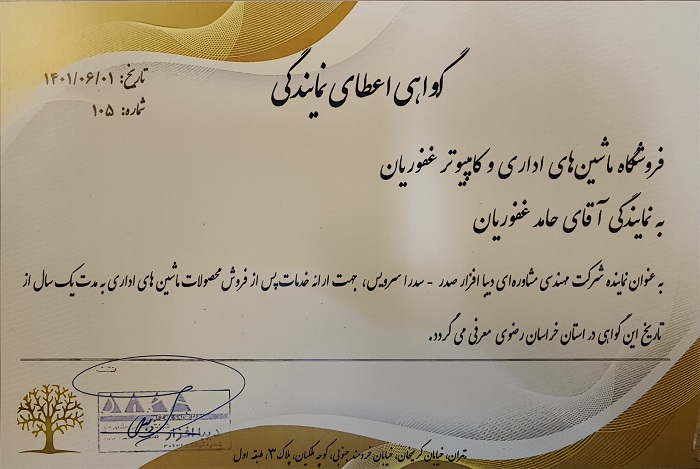 گواهی اعطای نمایندگی
تاریخ: ۱۴۰۱/۰۶/۰۱
شماره: ۱۰۵
فروشگاه ماشین‌های اداری و کامپیوتر غفوریان
به نمایندگی آقای حامد غفوریان
به عنوان نماینده شرکت مهندسی مشاوره‌ای دیبا افزار صدر - سدرا سرویس، جهت ارائه خدمات پس از فروش محصولات ماشین های اداری به مدت یک سال از
تاریخ این گواهی در استان خراسان رضوی معرفی می گردد.
دیبا افزار
تهران، خیابان کریمخان، خیابان خردمند جنوبی، کوچه ملکیان، پلاک ۳، طبقه اول